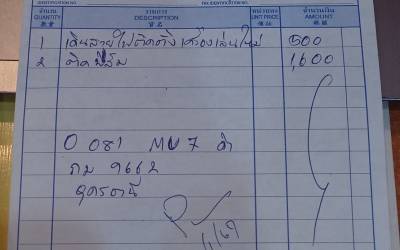 จำนวน รายการ หน่วยละ จำนวนเงิน
QUANTITY DESCRIPTION UNIT PRICE AMOUNT
1 เดินสายไฟติดตั้งเครื่องเล่นใหม่ 500
2 ติดฟิล์ม 1,600
081 MU7 ดำ
กม 9662
อุดรธานี